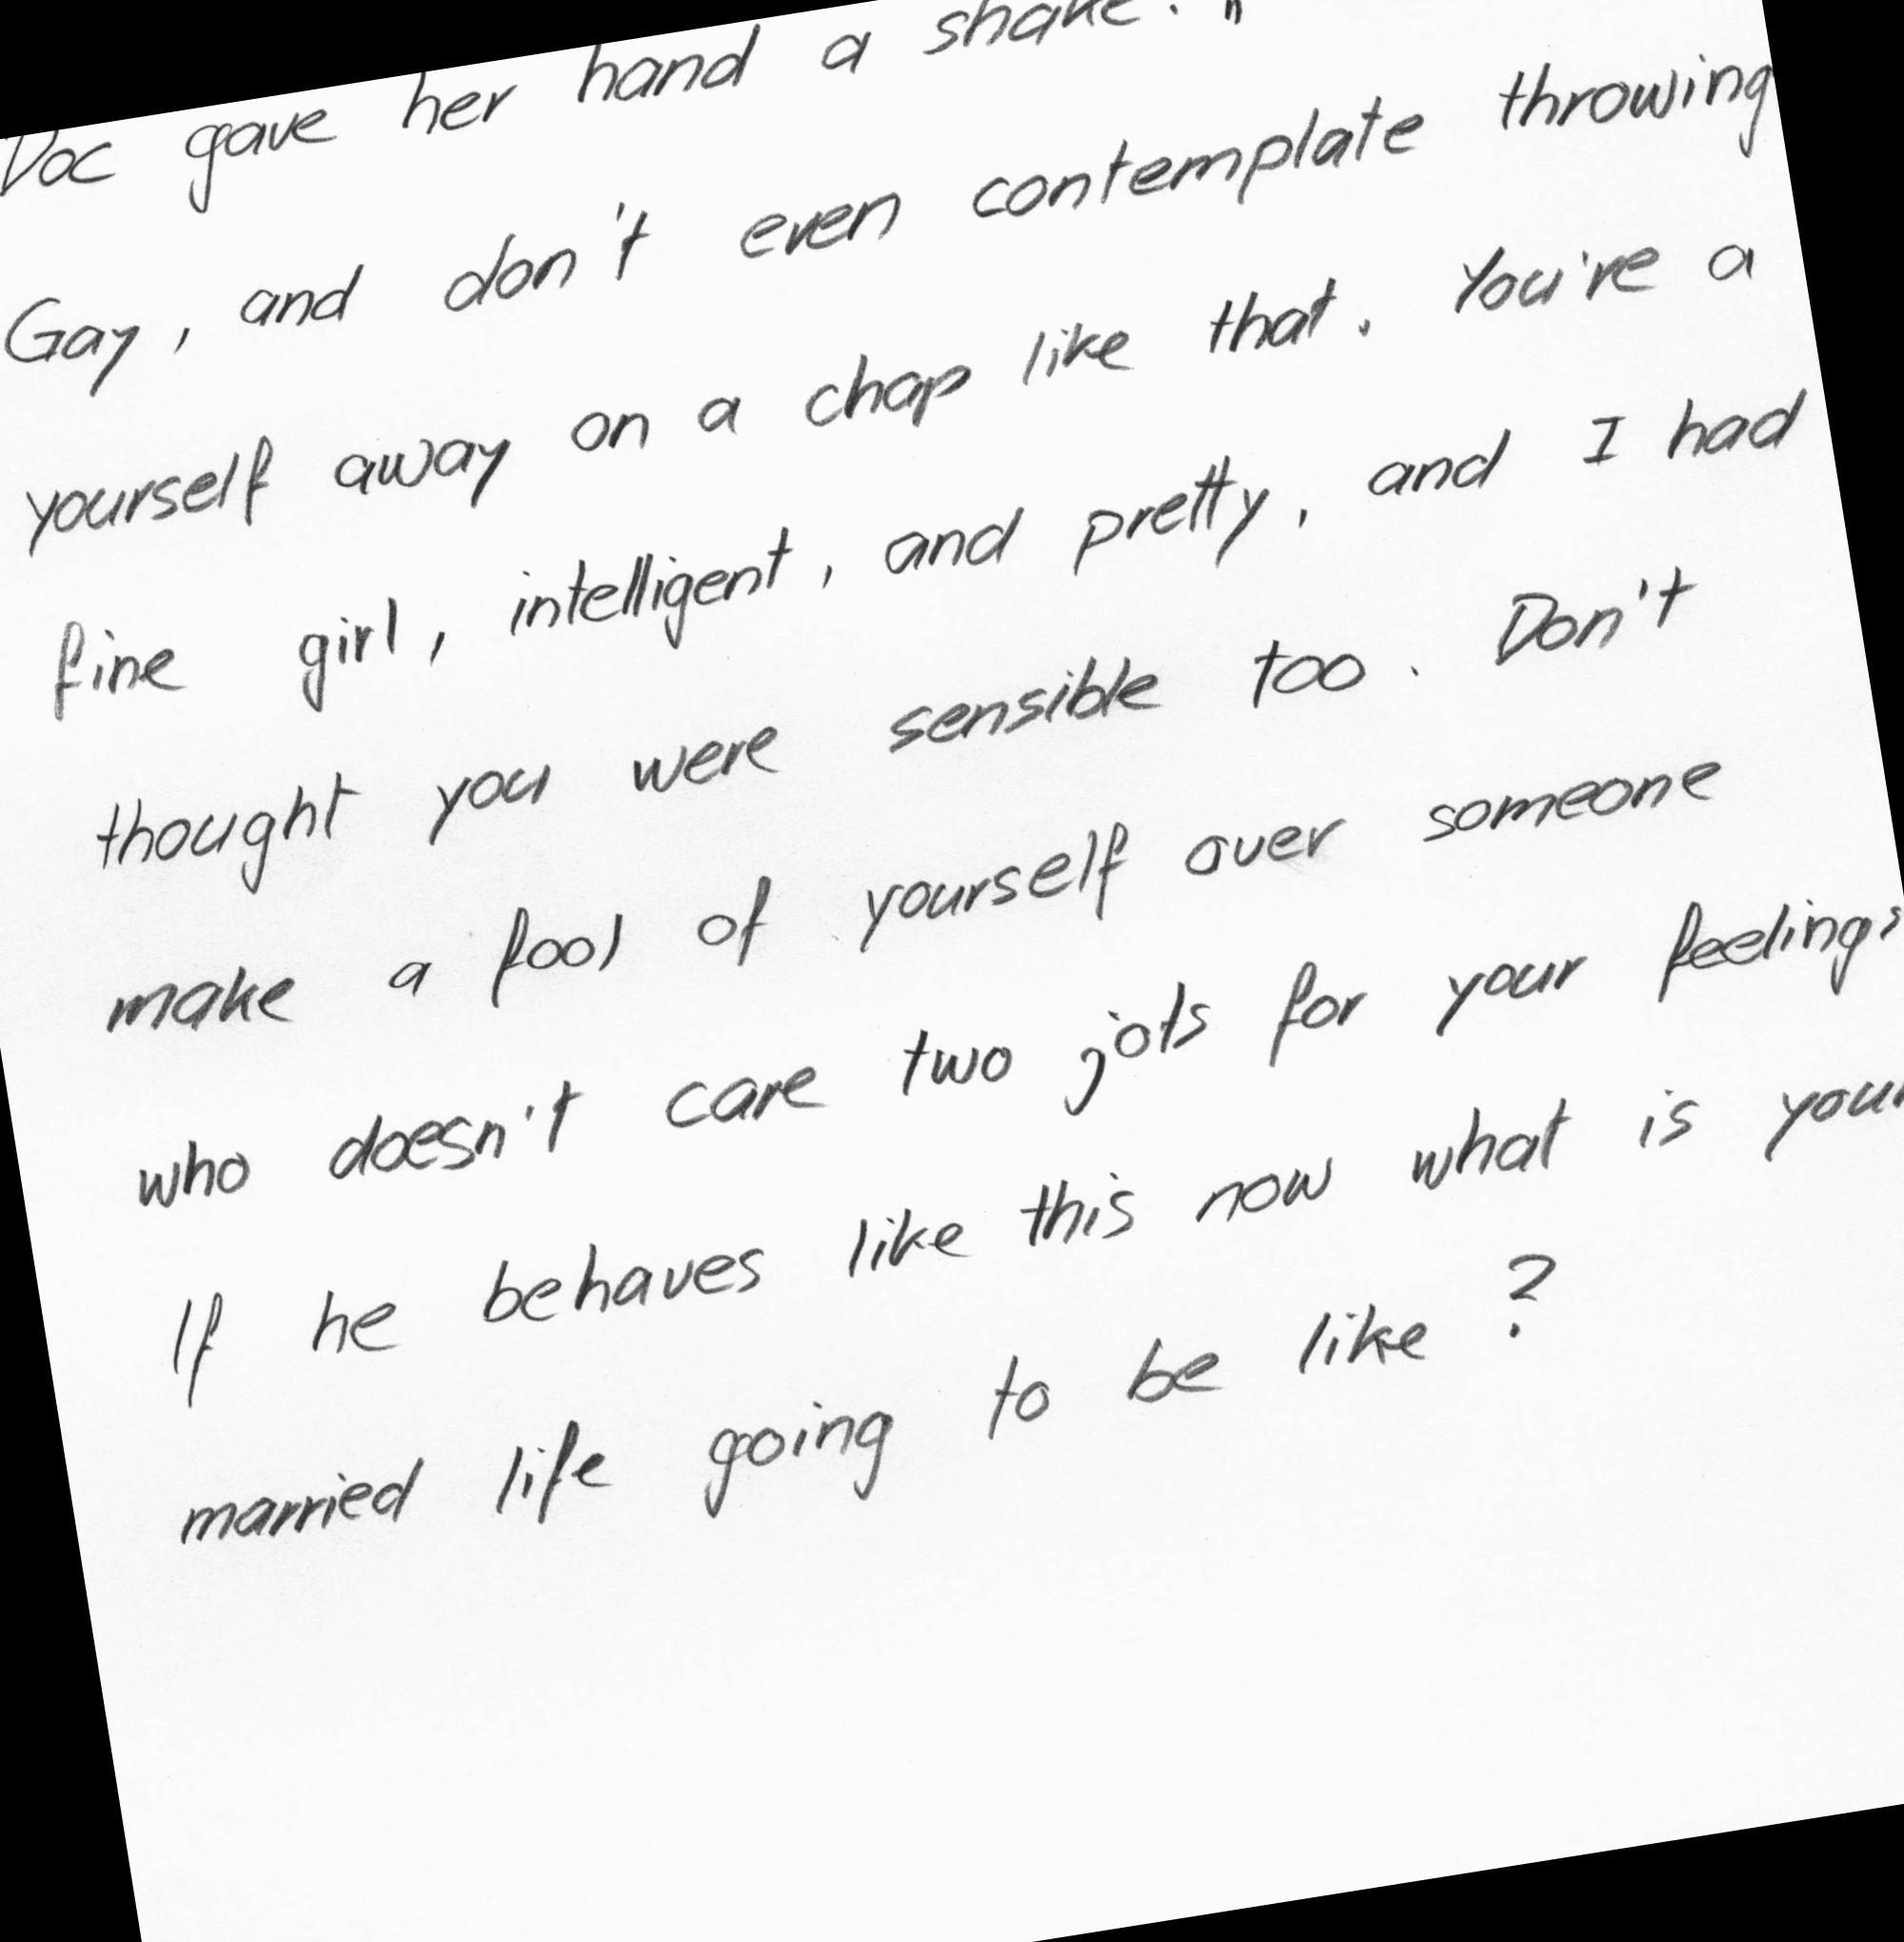 Doc gave her hand a shake. "
Gay, and don't even contemplate throwing
yourself away on a chap like that. You're a
fine girl, intelligent, and pretty, and I had
thought you were sensible too. Don't
make a fool of yourself over someone
who doesn't care two jots for your feelings
If he behaves like this now what is your
married life going to be like?